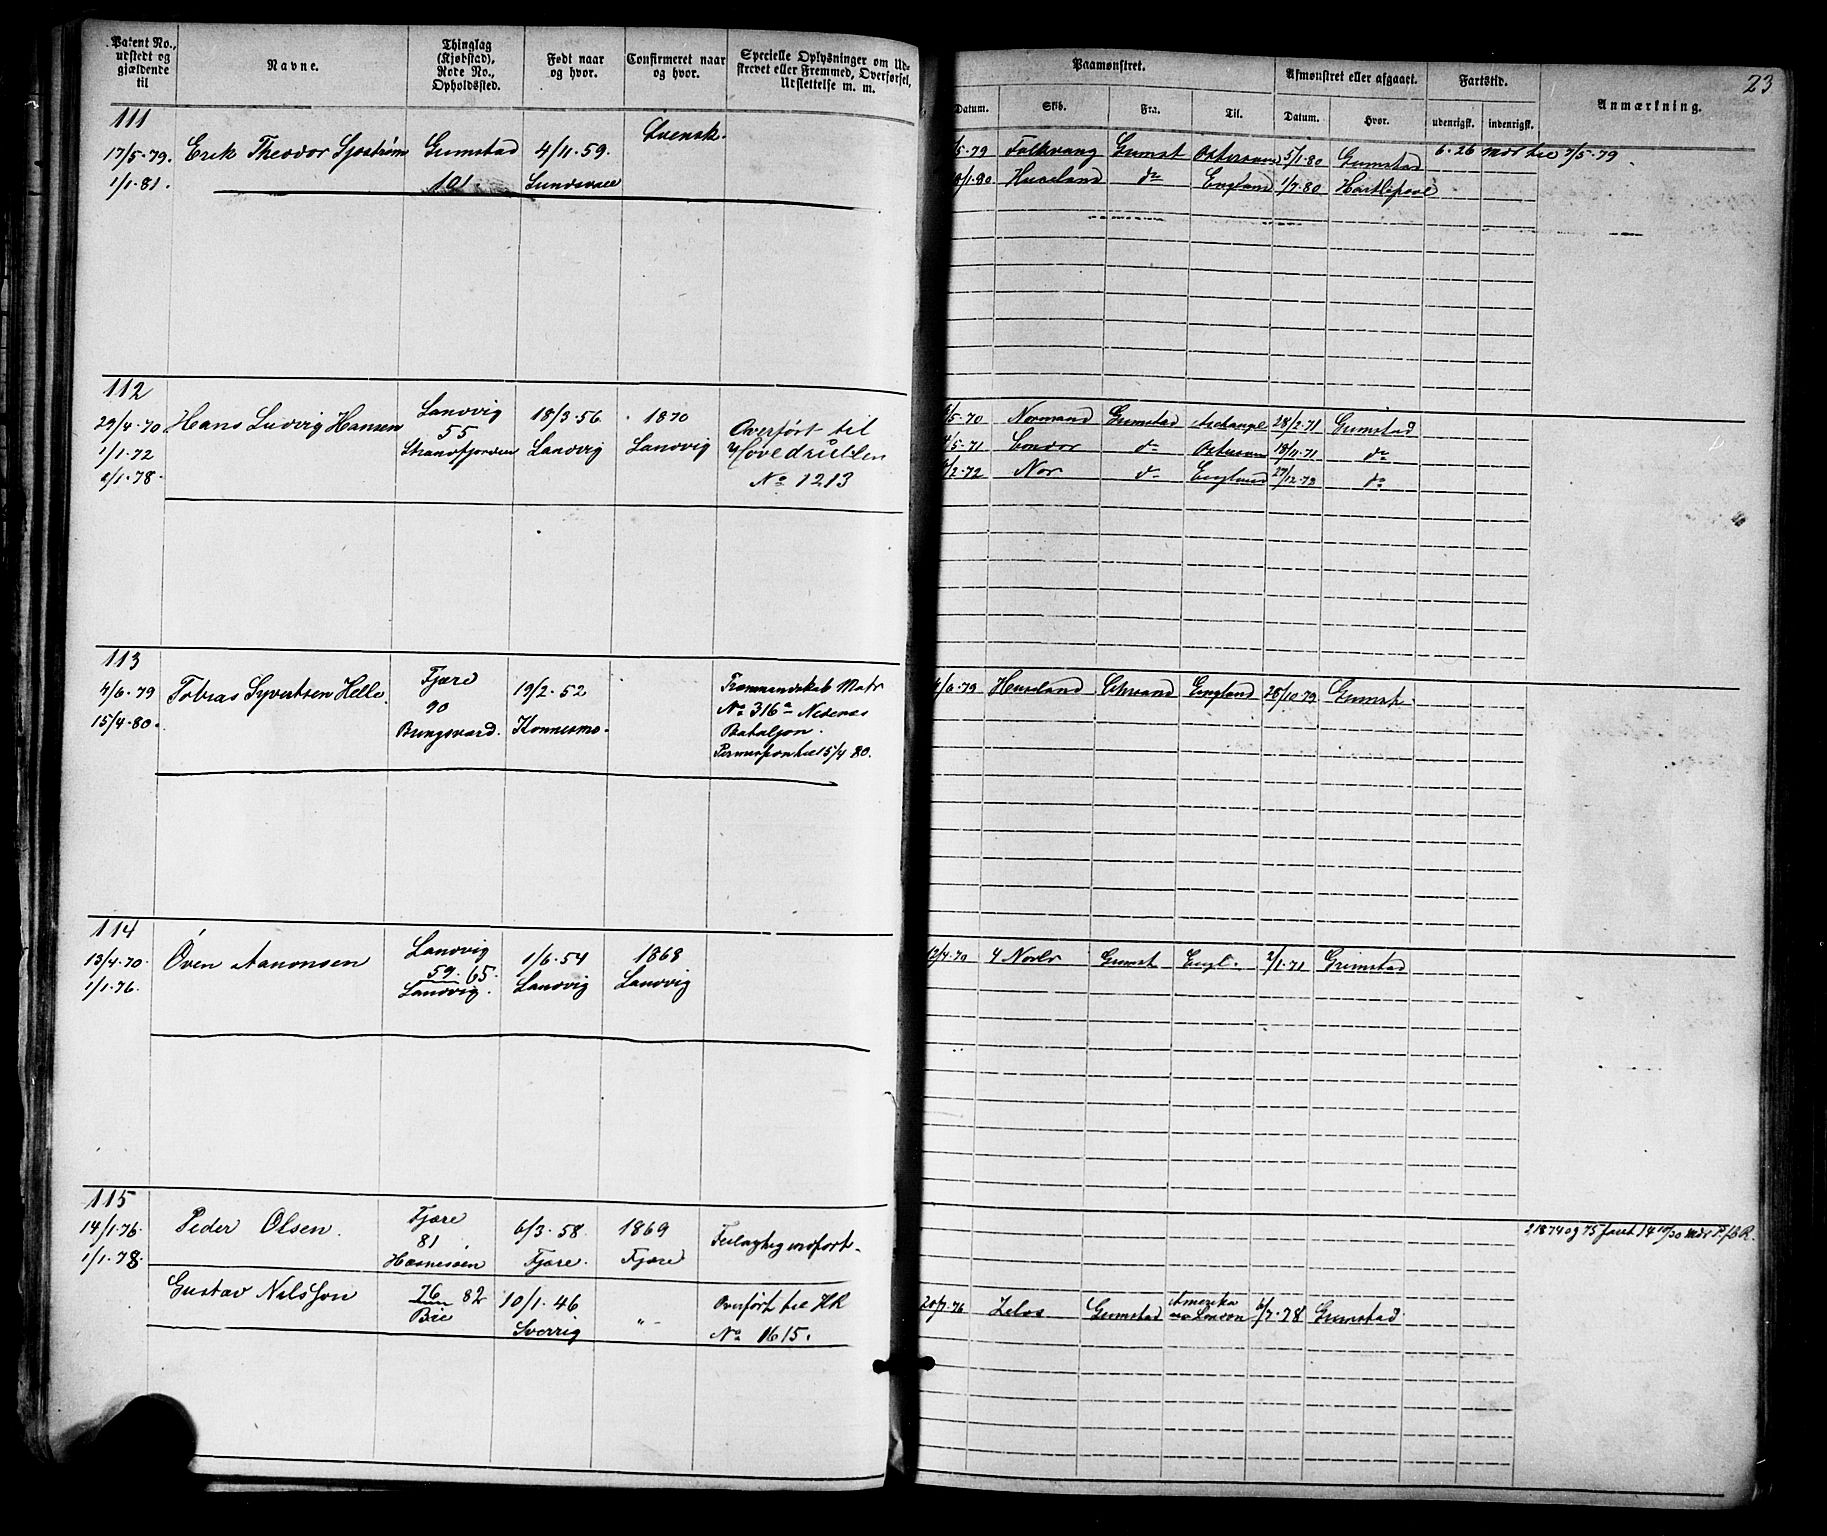 23
Patent No., udstedt og gjældende til
Navne.
Thinglag (Kjøbstad), Rode No., Opholdssted.
Født naar og hvor.
Confirmeret naar og hvor.
Specielle Oplysninger om Udskrevet eller Fremmed, Overførsel, Udslettelse m. m.
Paamønstret.
Afmønstret eller afgaaet.
Fartstid.
Anmærkning.
Datum.
Skib.
Fra.
Til.
Datum.
Hvor.
udenrigsk.
indenrigsk.
111
17/5-79. Erik Theodor Sjøstrøm Grimstad 4/11-59. Svensk.
1/1-81. 101. Sundsvall
/5-79 Folkvang Grimst Østersøen 5/1-80 Grimstad 6-26 mdr til 7/5-79.
/1-80 Huseland do England 1/7-80 Hartlepool
112
29/4-70 Hans Ludvig Hansen Landvig 18/3-56 1870 Overført til
1/1-72 55 Landvig Landvig Hovedrullen
1/1-78. Strandfjorden No 1213
/5-70 Normand Grimstad Archangel 28/2-71 Grimstad
4/5-71 Condor do Østersøen 18/11-71 do
/2-72 Nor do England 27/12-73 do
113
4/6-79 Tobias Syvertsen Helle Fjære 19/2-52 Kommandskab Mdr
15/4-80. 90 Konnesmo. No 316a Nedenæs
Bringsværd. Bataljon.
Permission til 15/4 80.
4/6-79 Huseland Chrsand England 28/10-79 Grimst.
114
13/4-70 Øven Aanonsen Landvig 1/6-54 1868
1/1-76. 59. 65 Landvig Landvig
Landvig.
12/4-70 4 Norls Grimst Engl. 2/1-71 Grimstad
115
14/1-76 Peder Olsen. Fjære 6/3-58 1869 Feilagtig indført.
1/1-78 81 Fjære. Fjære
Hasnessen
Gustav Nilsson 76 82 10/1-46 Overført til HR
Bie Sverrig -"- No 1615.
i 1874 og 75 faret 14 10/30 mdr
20/7-76 Zelos Grimstad Amerika 6/7-78 Grimstad
London